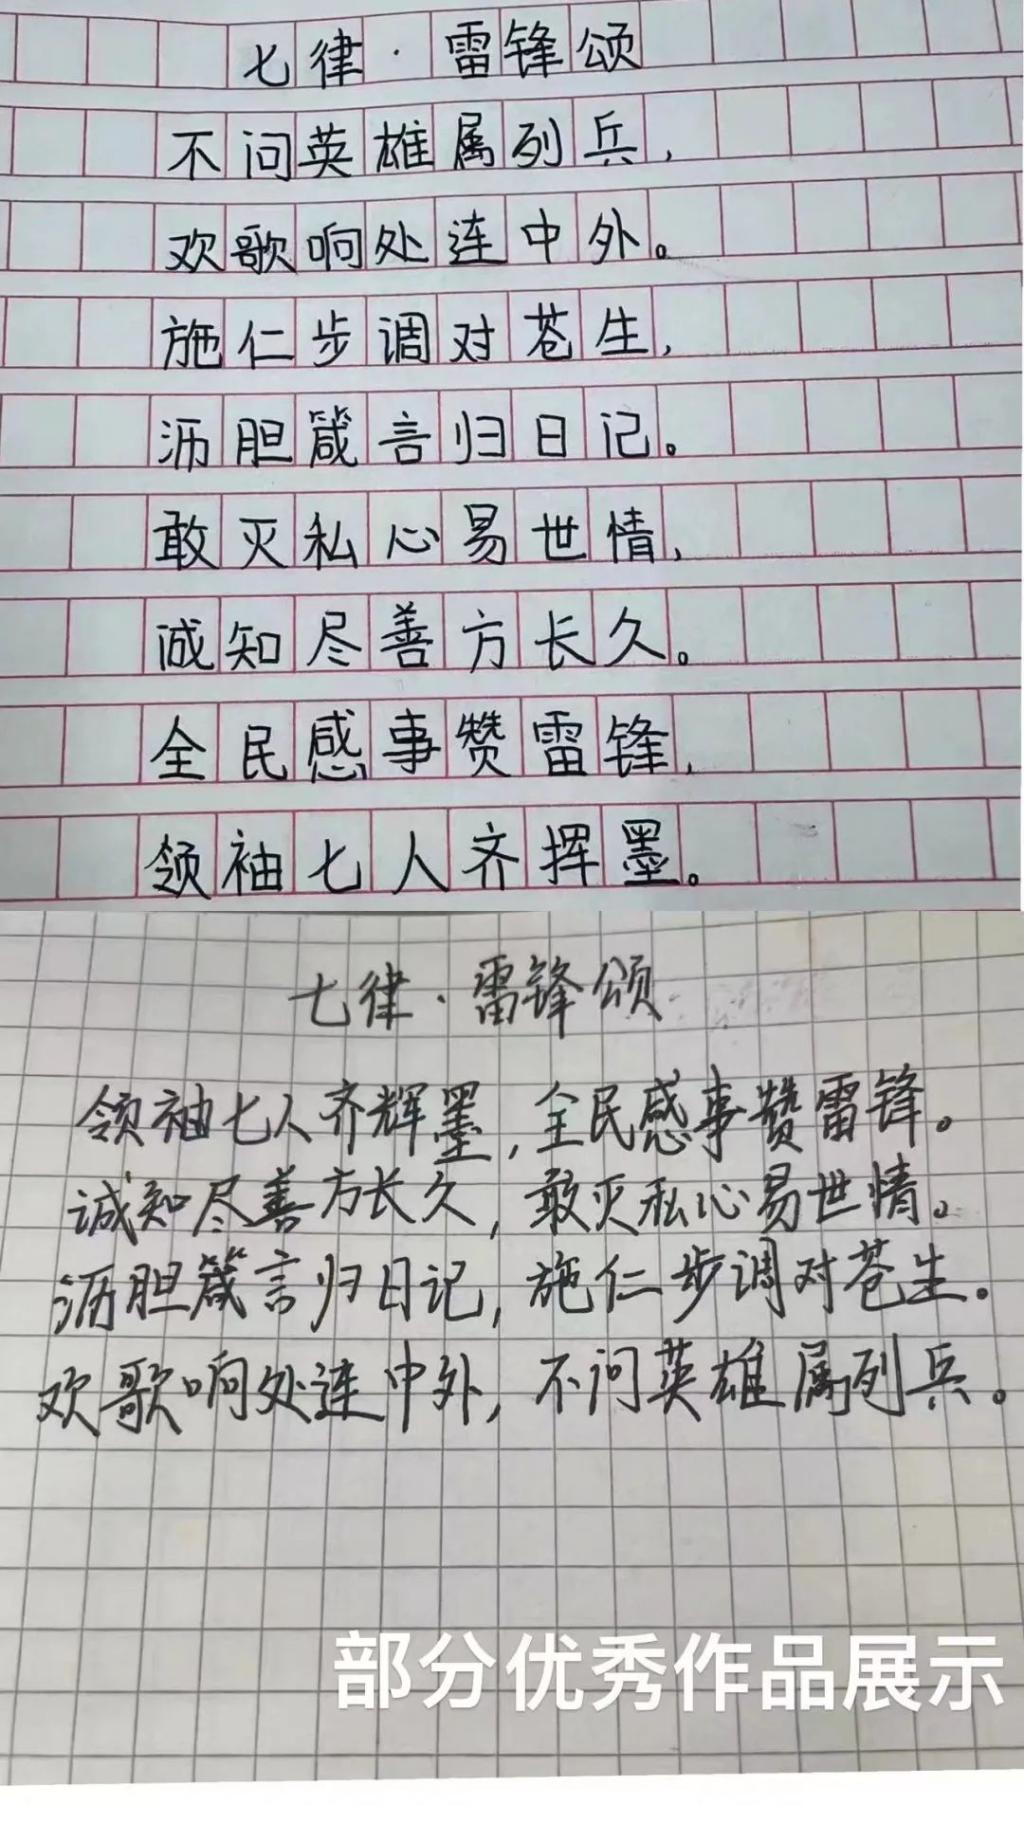 七律·雷锋颂
不问英雄属列兵，
欢歌响处连中外。
施仁步调对苍生，
沥胆箴言归日记。
敢灭私心易世情，
诚知尽善方长久。
全民感事赞雷锋，
领袖七人齐挥墨。
七律·雷锋颂
领袖七人齐辉墨，全民感事赞雷锋。
诚知尽善方长久，敢灭私心易世情。
沥胆箴言归日记，施仁步调对苍生。
欢歌响处连中外，不问英雄属列兵。
部分优秀作品展示